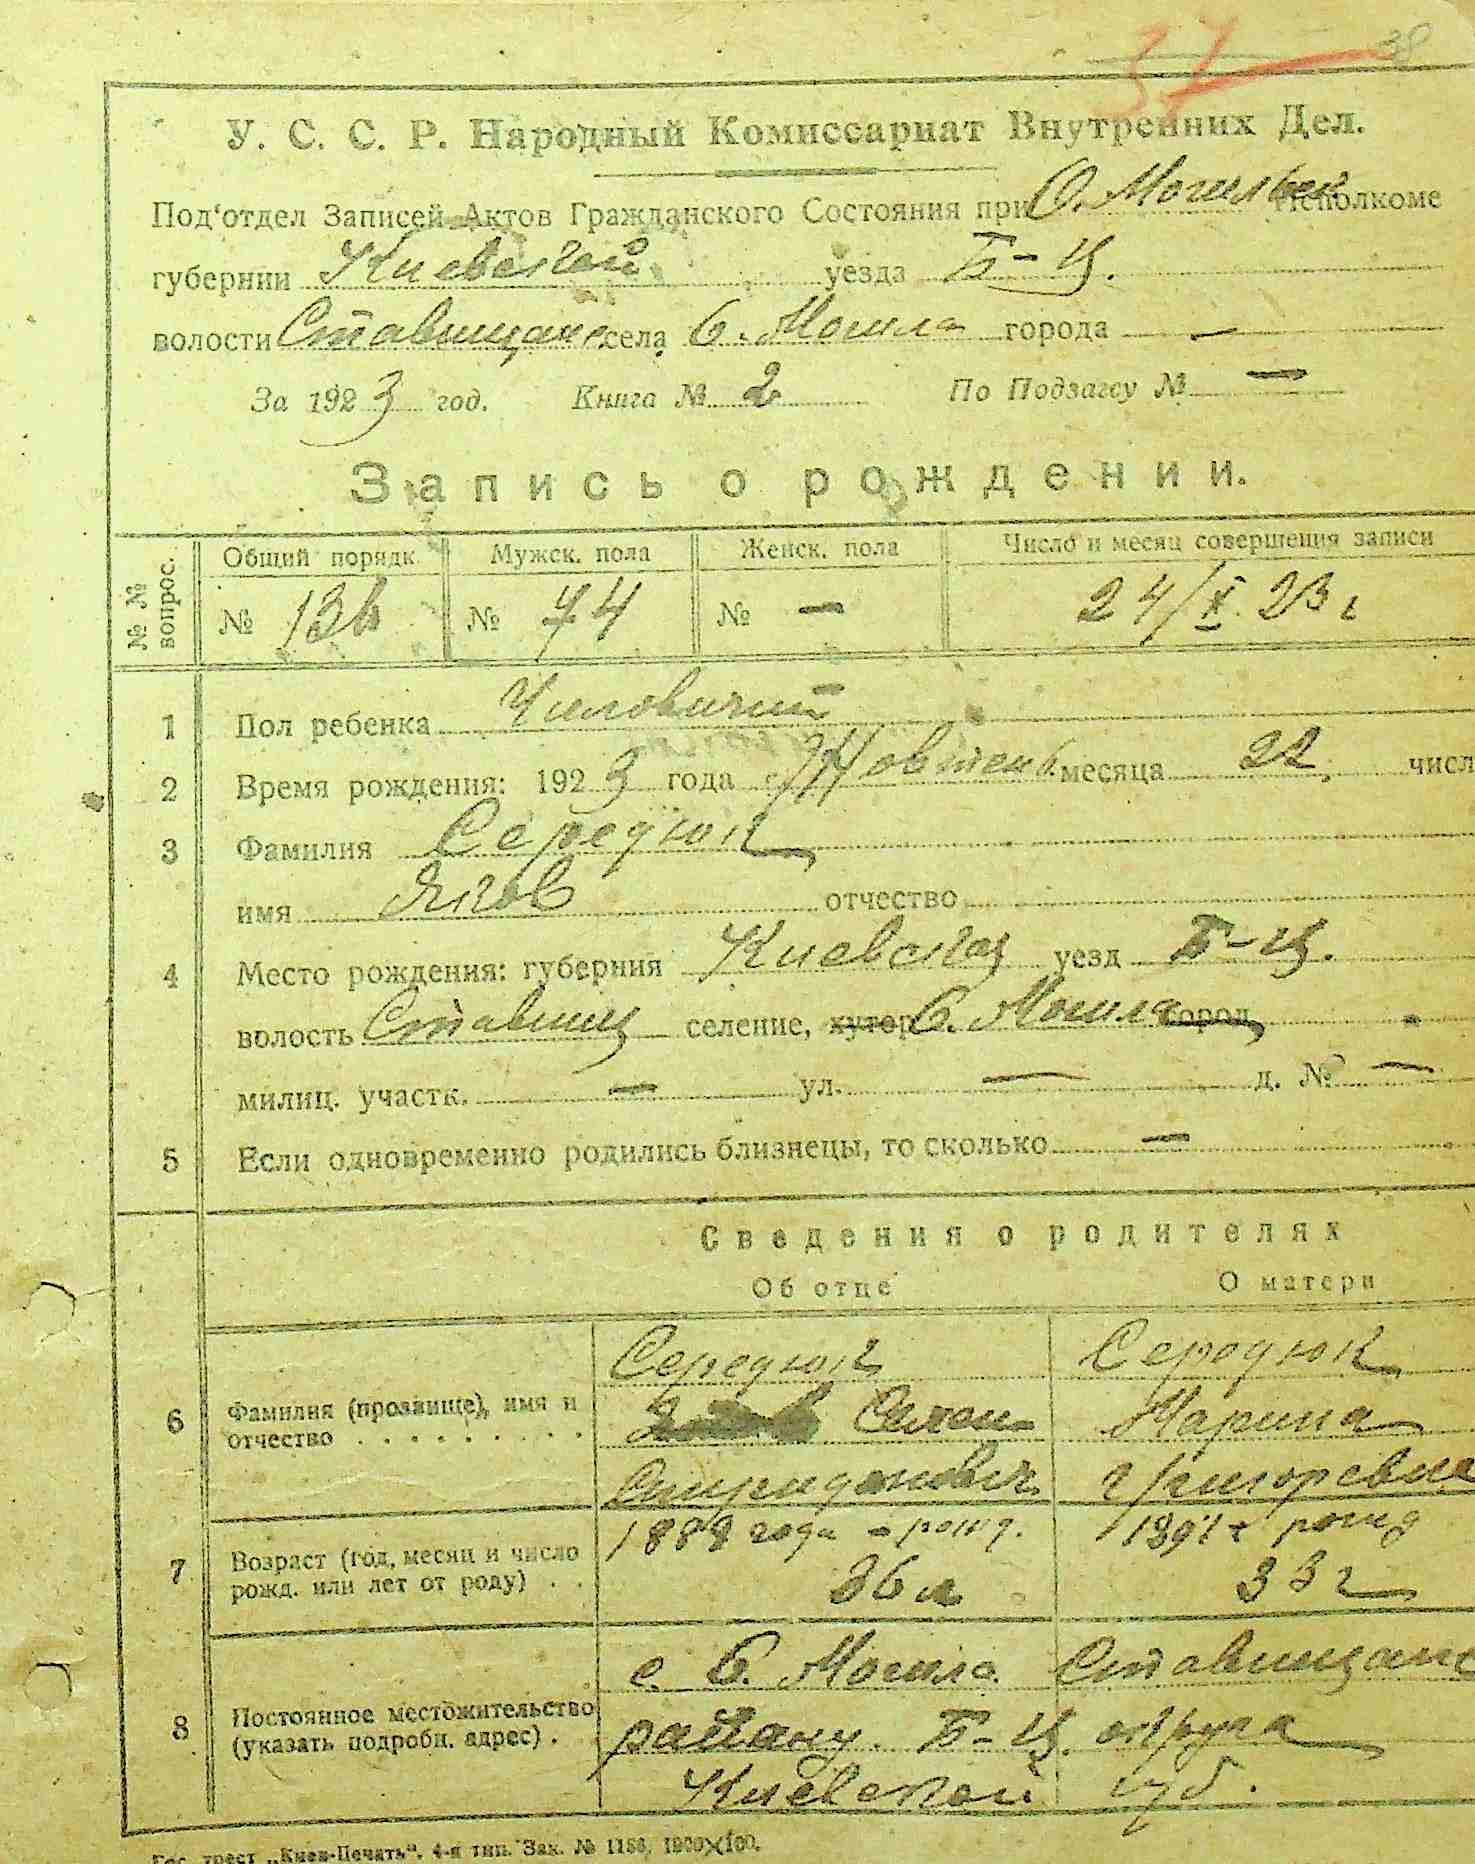 37 38
У. С. С. Р. Народный Комиссариат Внутренних Дел.
Под‘отдел Записей Актов Гражданского Состояния при О. Могильск Исполкоме
губернии Киевской уезда Б-Ц.
волости Ставищанс села О. Могила города —
За 1923 год. Книга № 2 По Подзагсу № —
Запись о рождении.
№ № вопрос. Общий порядк. Мужск. пола Женск. пола Число и месяц совершения записи
№ 136 № 74 № — 24/X 23 г
1 Пол ребенка Чиловичий
2 Время рождения: 1923 года Жовтень месяца 22 числ
3 Фамилия Середюк
имя Яков отчество
4 Место рождения: губерния Киевская уезд Б-Ц.
волость Ставищ селение, хутор О. Могила город
милиц. участк. — ул. — д. № —
5 Если одновременно родились близнецы, то сколько —
Сведения о родителях
Об отце О матери
6 Фамилия (прозвище), имя и отчество
Середюк Середюк
Семен Марина
Спиридонович Григоревна
7 Возраст (год, месяц и число рожд. или лет от роду)
1888 года рожд. 1891 г рожд
36 л 33 г
8 Постоянное местожительство (указать подробн. адрес)
с. О. Могила Ставищанс
району Б-Ц. округа
Киевской губ.
Гос. трест „Киев-Печать“, 4-я тип. Зак. № 1156, 1200×100.